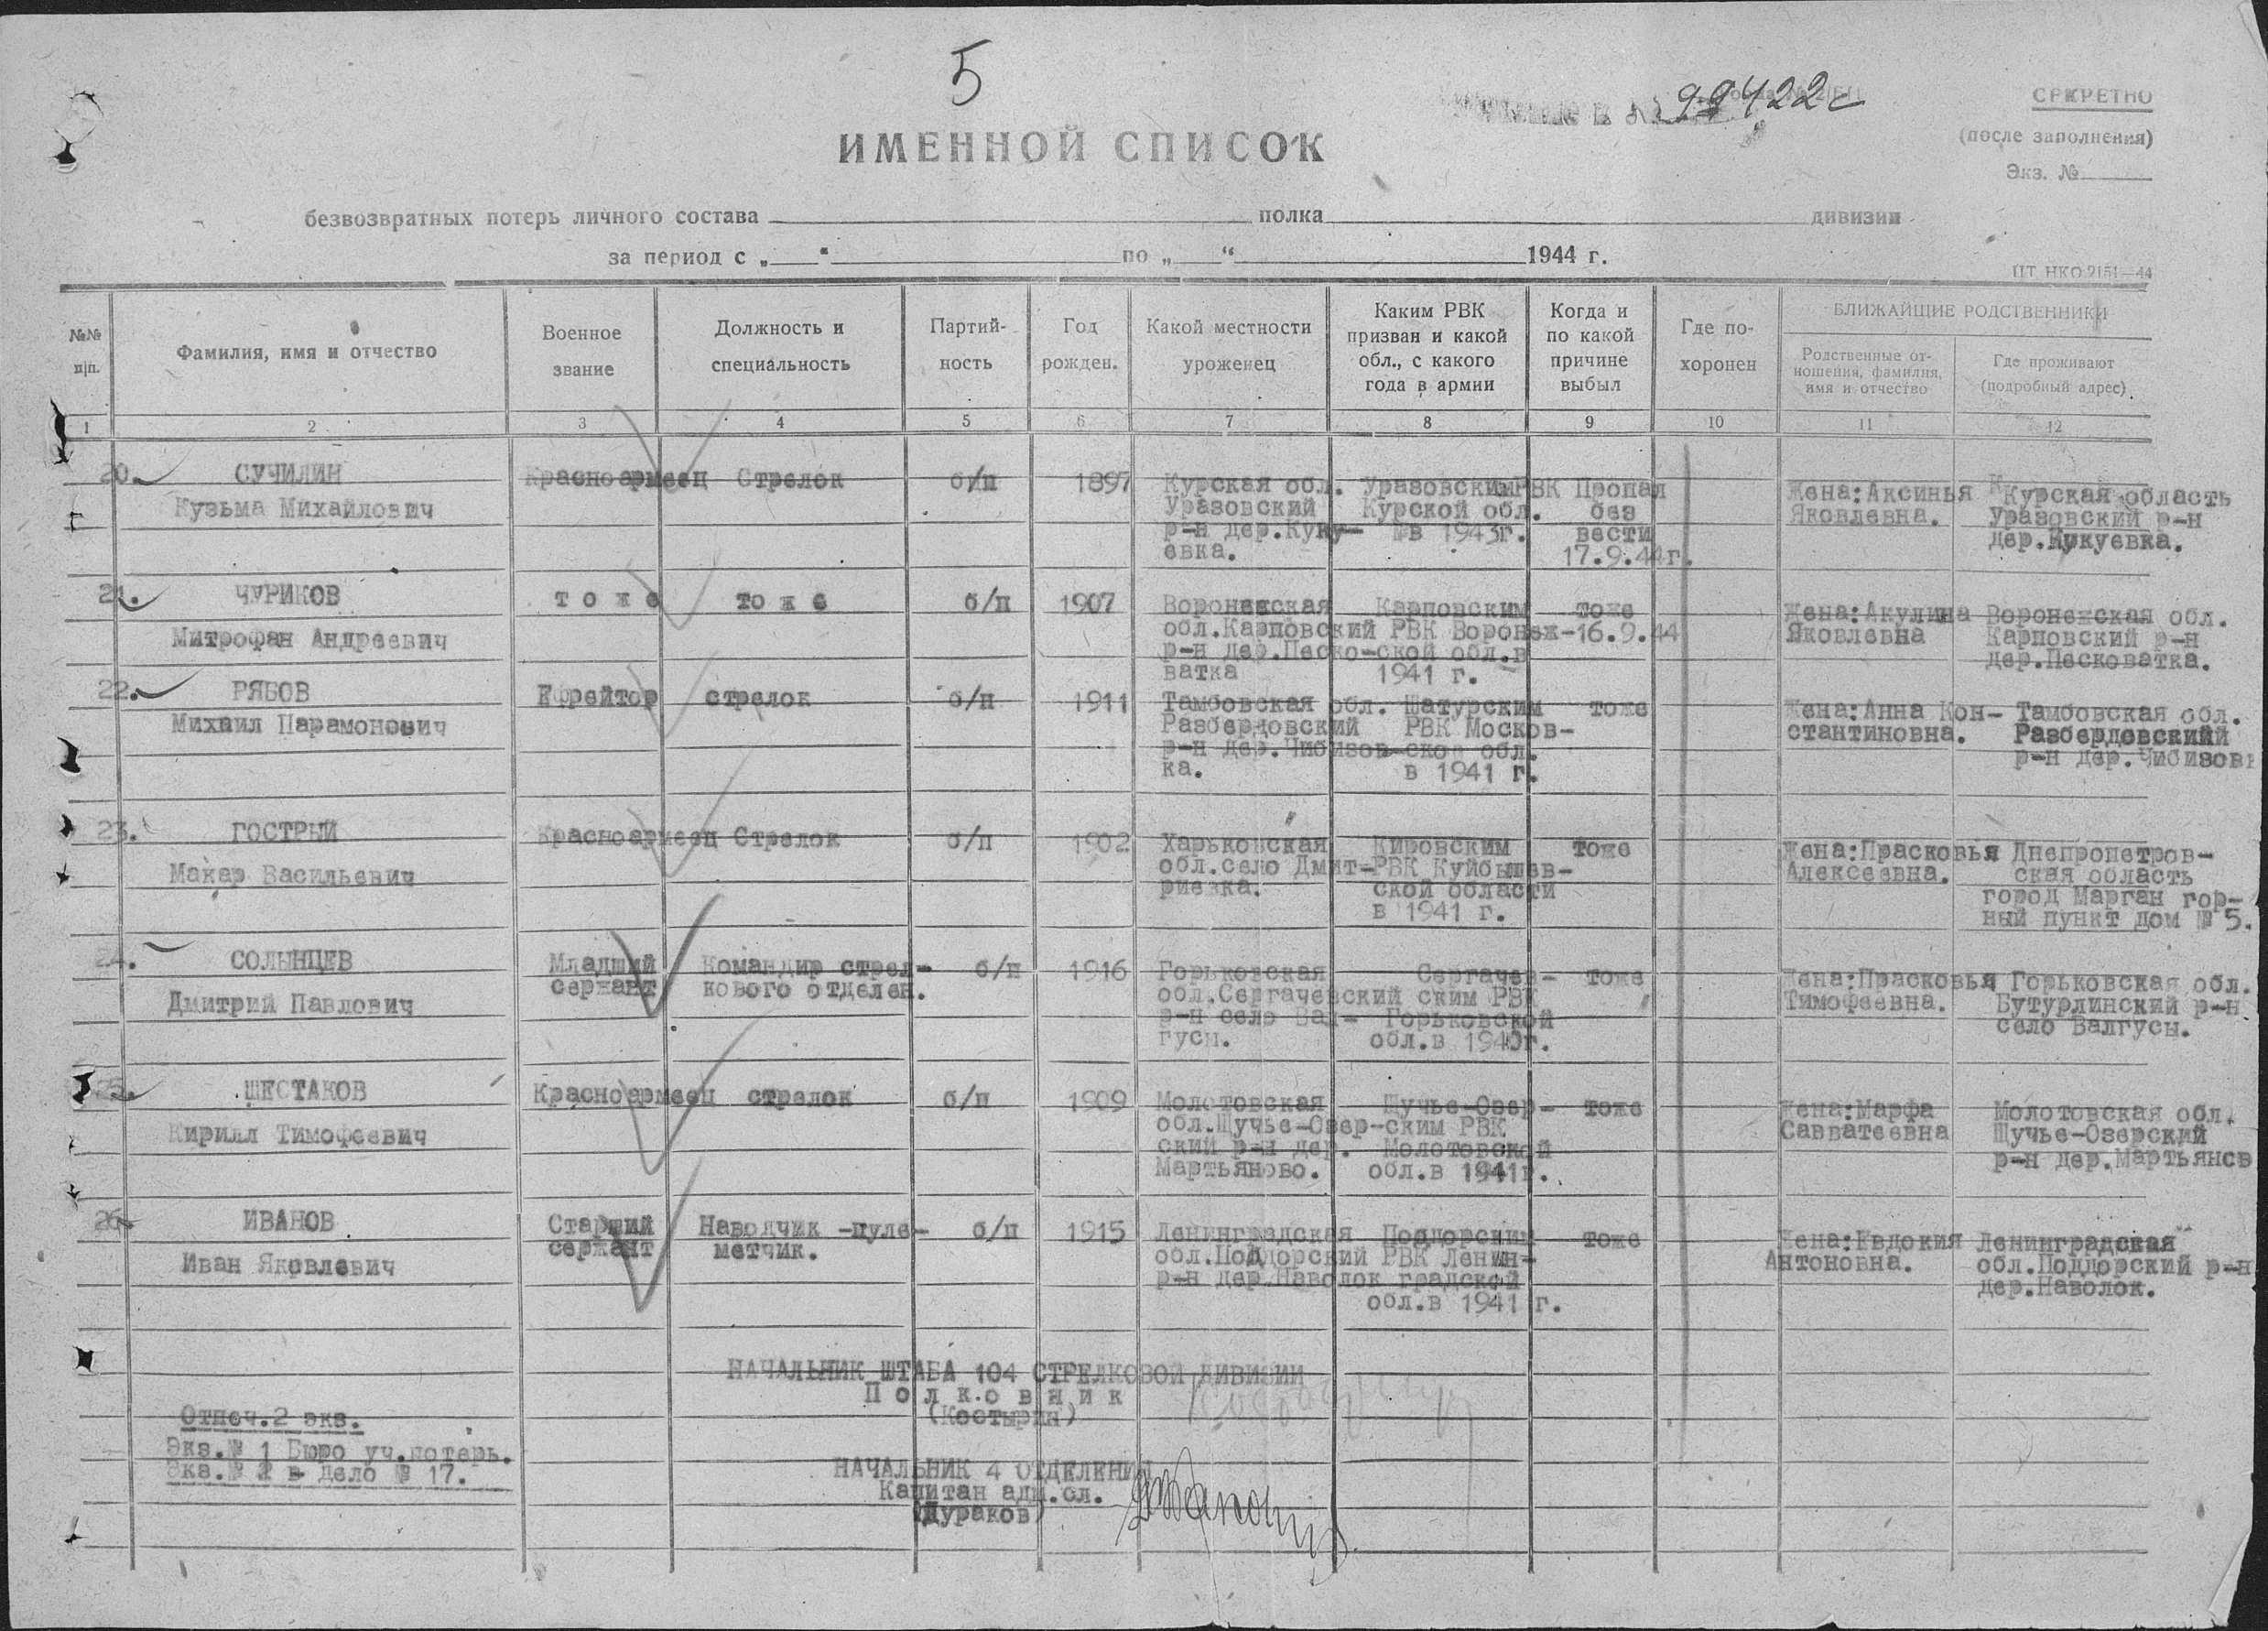 5
99422с
СЕКРЕТНО
(после заполнения)
Экз. №
ИМЕННОЙ СПИСОК
безвозвратных потерь личного состава полка дивизии
за период с „ “ по „ “ 1944 г.
ЦТ НКО 2151—44
№№ п|п.
Фамилия, имя и отчество
Военное звание
Должность и специальность
Партий-ность
Год рожден.
Какой местности уроженец
Каким РВК призван и какой обл., с какого года в армии
Когда и по какой причине выбыл
Где по-хоронен
БЛИЖАЙЩИЕ РОДСТВЕННИКИ
Родственные от-ношения, фамилия, имя и отчество
Где проживают (подробный адрес)
1 2 3 4 5 6 7 8 9 10 11 12
20. СУЧИЛИН Красноармеец Стрелок б/п 1897 Курская обл. УразовскимРВК Пропал Жена:Аксинья Курская область
Кузьма Михайлович Уразовский Курской обл. без Яковлевна. Уразовский р-н
р-н дер.Куку- в 1943г. вести дер.Кукуевка.
евка. 17.9.44г.
21. ЧУРИКОВ т о ж е то ж е б/п 1907 Воронежская Карповским тоже Жена:Акулина Воронежская обл.
Митрофан Андреевич обл.Карповский РВК Воронеж-16.9.44 Яковлевна Карповский р-н
р-н дер.Песко-ской обл.в дер.Песковатка.
ватка 1941 г.
22. РЯБОВ Ефрейтор стрелок б/п 1911 Тамбовская обл. Шатурским тоже Жена:Анна Кон- Тамбовская обл.
Михаил Парамонович Разбердовский РВК Москов- стантиновна. Разбердовскийй
р-н дер.Чибизов-ской обл. р-н дер.Чибизовк
ка. в 1941 г.
23. ГОСТРЫЙ Красноармеец Стрелок б/п 1902 Харьковская Кировским тоже Жена:Прасковья Днепропетров-
Макар Васильевич обл.село Дмит-РВК Куйбышев- Алексеевна. ская область
риевка. ской области город Марган гор-
в 1941 г. ный пункт дом № 5.
24. СОЛЫНЦЕВ Младший Командир стрел- б/п 1916 Горьковская Сергачев- тоже Жена:Прасковья Горьковская обл.
Дмитрий Павлович сержант кового отделен. обл.Сергачевский ским РВК Тимофеевна. Бутурлинский р-н
р-н село Вал- Горьковской село Валгусы.
гусы. обл.в 1940г.
25. ШЕСТАКОВ Красноармеец стрелок б/п 1909 Молотовская Щучье-Озер- тоже Жена:Марфа Молотовская обл.
Кирилл Тимофеевич обл.Щучье-Озер-ским РВК Савватеевна Щучье-Озерский
ский р-н дер. Молотовской р-н дер.Мартьянов
Мартьяново. обл.в 1941г.
26. ИВАНОВ Старший Наводчик -пуле- б/п 1915 Ленинградская Поддорским тоже Жена:Евдокия Ленинградская
Иван Яковлевич сержант метчик. обл.Поддорский РВК Ленин- Антоновна. обл.Поддорский р-н
р-н дер.Наволок градской дер.Наволок.
обл.в 1941 г.
НАЧАЛЬНИК ШТАБА 104 СТРЕЛКОВОЙ ДИВИЗИИ
П о л к о в н и к
(Костырин)
Отпеч.2 экз.
Экз.№ 1 Бюро уч.потерь.
Экз.№ 2 в дело № 17.
НАЧАЛЬНИК 4 ОТДЕЛЕНИЯ
Капитан адм.сл.
(Дураков)